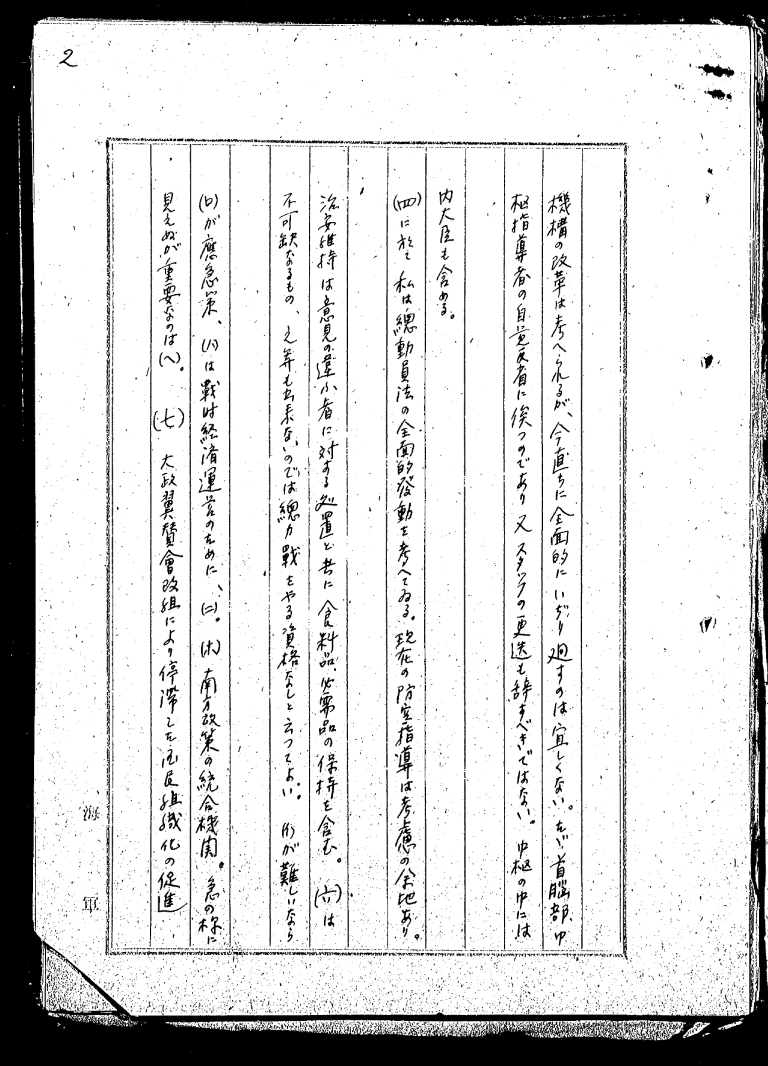 2
機構の改革は考へられるが、今直ちに全面的にいぢり廻すのは宜しくない。たゞ首脳部、中
枢指導者の自覚反省に俟つのであり又スタッフの更迭も辞すべきではない。中枢の中には
内大臣も含める。
(四)に於て私は總動員法の全面的發動を考へてゐる。現在の防空指導は考慮の余地あり。
治安維持は意見の違ふ者に対する処置と共に食料品、必需品の保持を含む。(六)は
不可缺なるもの、之等も出来ないのでは總力戰をやる資格なしと云つてよい。(イ)が難しいなら
(ロ)が應急策、(ハ)は戰時経済運営のために、(ニ)。(ホ)南方政策の統合機関。急の様に
見えぬが重要なのは(ヘ)。(七)大政翼賛會改組により停滞した国民組織化の促進、
海軍